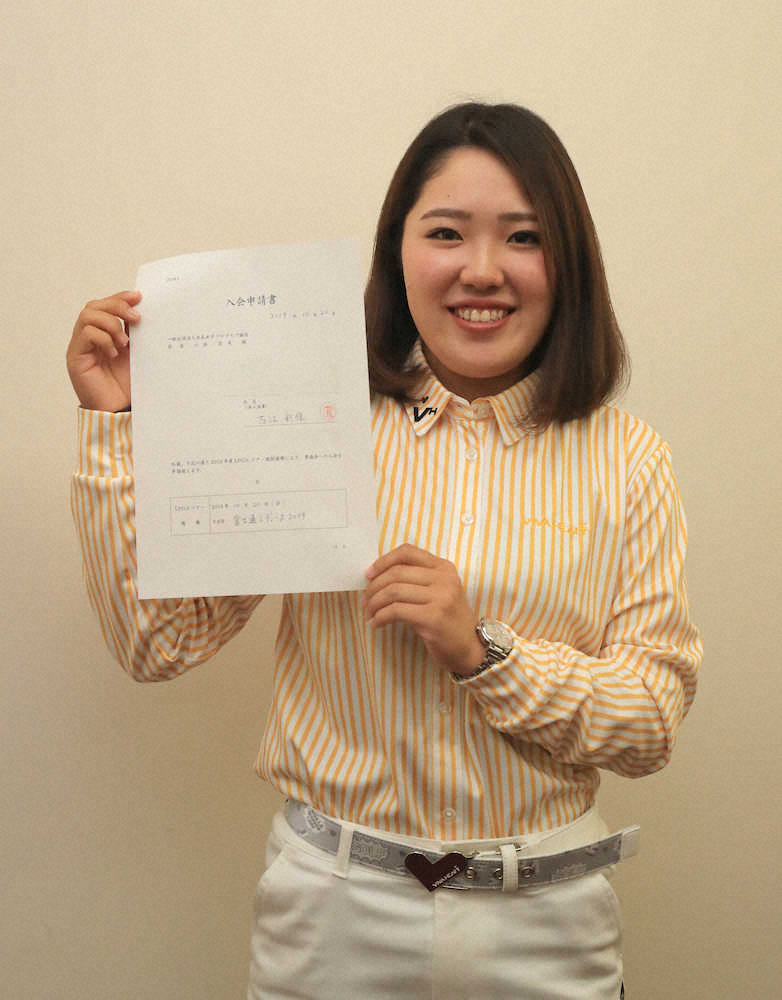 入会申請書
2019年10月20日
一般社団法人日本女子プロゴルフ協会
会長 小林 浩美 様
氏名
古江 彩佳
私儀、下記の通り2019年度LPGAツアー競技優勝により、貴協会への入会を
申請致します。
記
LPGAツアー 2019年 10月 20日(日)
優勝 大会名 富士通レディース2019
以上
VH